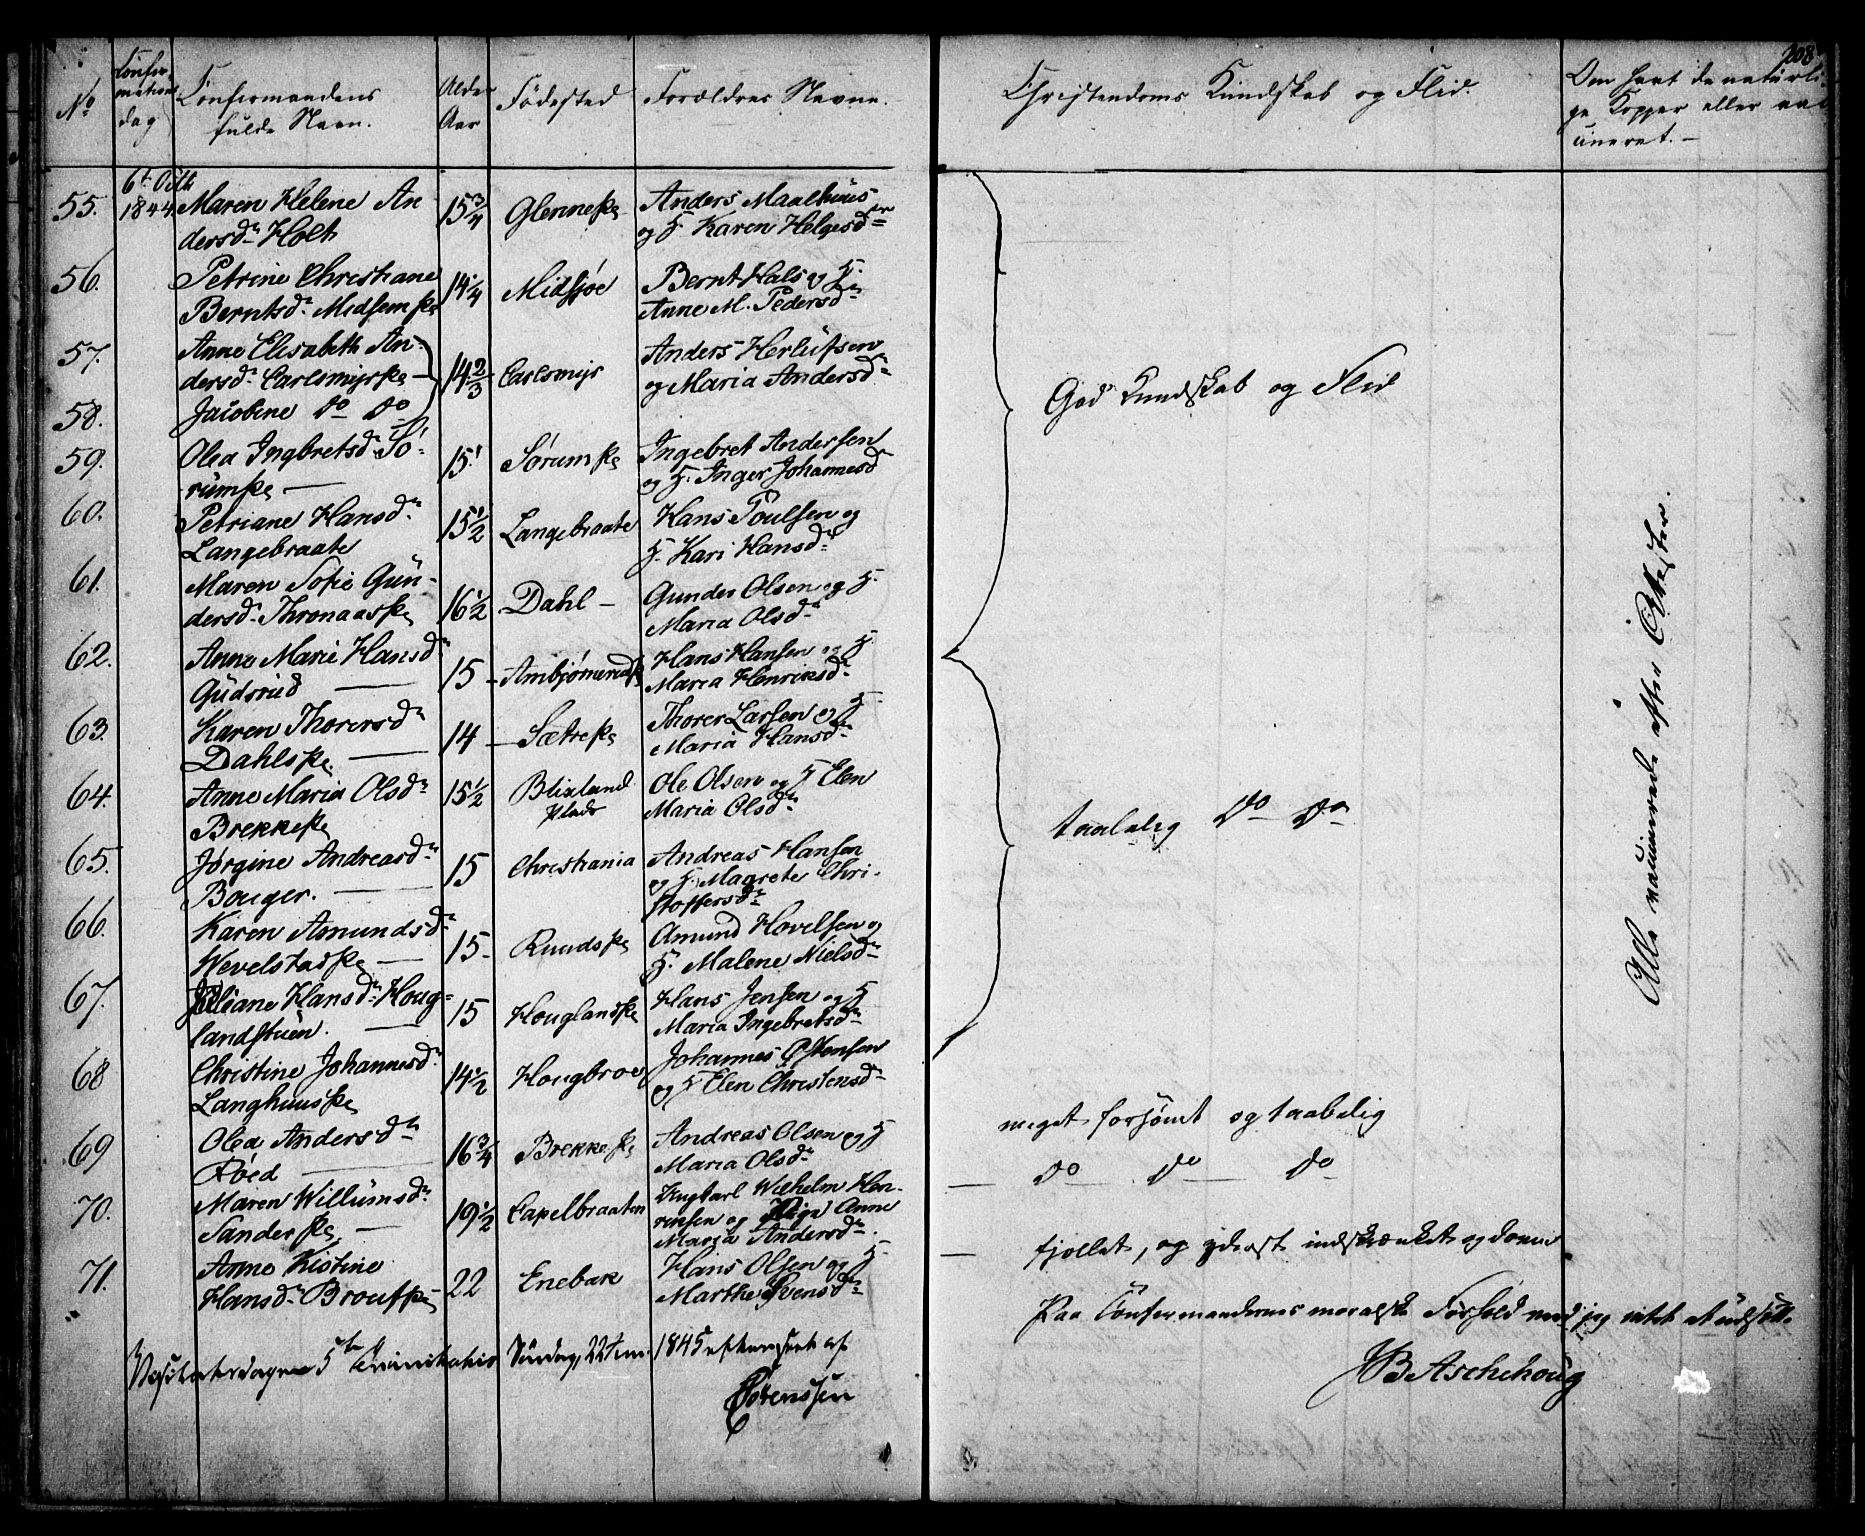 208
No
Confir-
mations
dag
Confirmandens
fulde Navn.
Alder
Aar
Fødested
Forældres Navne.
Christendoms Kundskab og Flid.
Om havt de naturli-
ge Kopper eller vac
cineret. -
55.
6t Octb
1844
Maren Helene An
dersdr Holt
15 3/4
Glenneske
Anders Maalhuus
og H. Karen Helgesdr
56.
Petrine Christiane
Berntsdr Midsemske
14 1/4
Midsjøe
Bernt Hals og H.
Anne M. Pedersdr
57.
Anne Elisabeth An-
dersdr Carlsmyrske
14 2/3
Carlsmyr
Anders Herlufsen
og Maria Andersdr
58.
Jacobine do do
God Kundskab og Flid
59.
Olea Ingbretsdr Sö-
rumske
15 1
Sørumske
Ingebret Andersen
og H. Inger Johannesd
60.
Petriane Hansdr
Langebraate
15 1/2
Langebraate
Hans Poulsen og
H. Kari Hansdr
61.
Maren Sofie Gun-
dersdr Thronaaske
16 1/2
Dahl -
Gunder Olsen og H.
Maria Olsdr
62.
Anne Marie Hansdr
Gudsrud
15 -
Hans Hansen og H.
Maria Henriksdr
63.
Karen Thorersdr
Dahlske
14
Sætreske
Thorer Larsen og H.
Maria Hansdr
64.
Anne Maria Olsdr
Brekkeske
15 1/2
Blixland
Plads
Ole Olsen og H Elen
Maria Olsdr
taalelig do do
65.
Jørgine Andreasdr
Bouger.
15
Christiania
Andreas Hansen
og H. Magrete Chri-
stoffersdr
66.
Karen Amundsdr
Wevelstadske
15 -
Ruudske
Amund Hovelsen og
H. Malene Nielsdr
67.
Juliane Hansdr Houg=
landstuen.
15
Houglandske
Hans Jensen og H
Maria Ingebretsdr
68
Christine Johannesdr
Langhuuske
14 1/2
Hougbroe
Johannes Østensen
og H Elen Christensdr
meget forsømt og taabelig
69
Olea Andersdr
Röed
16 3/4
Brekkeske
Andreas Olsen og H
Maria Olsdr
do do do
70.
Maren Willumsdr
Sanderske
19 1/2
Capelbraaten
Ungkarl Wilhelm Hen-
riksen og Pige Anne
Maria Andersdr
fjollet, og yderst indskrænket og doven
71.
Anne Kistine
Hansdr Broufske
22
Enebak
Hans Olsen og H
Marthe Svensdr
Paa Confirmandernes moralske Forhold med jeg intet at udsætte
JB Aschehoug
5te Trinitatis Söndag, 22 Jun. 1845 efterseet af
Sörenssen
Alle vaccinerede efter Attester.